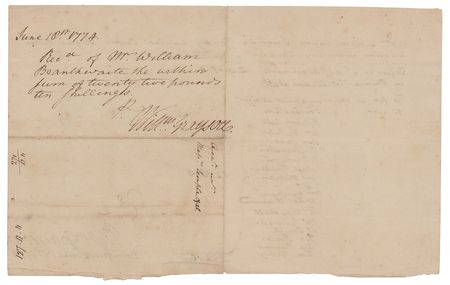 June 18th 1774.
Recd of Mr. William
Branthwaite the within
sum of twenty two pounds
ten shillings.
Willm Grayson